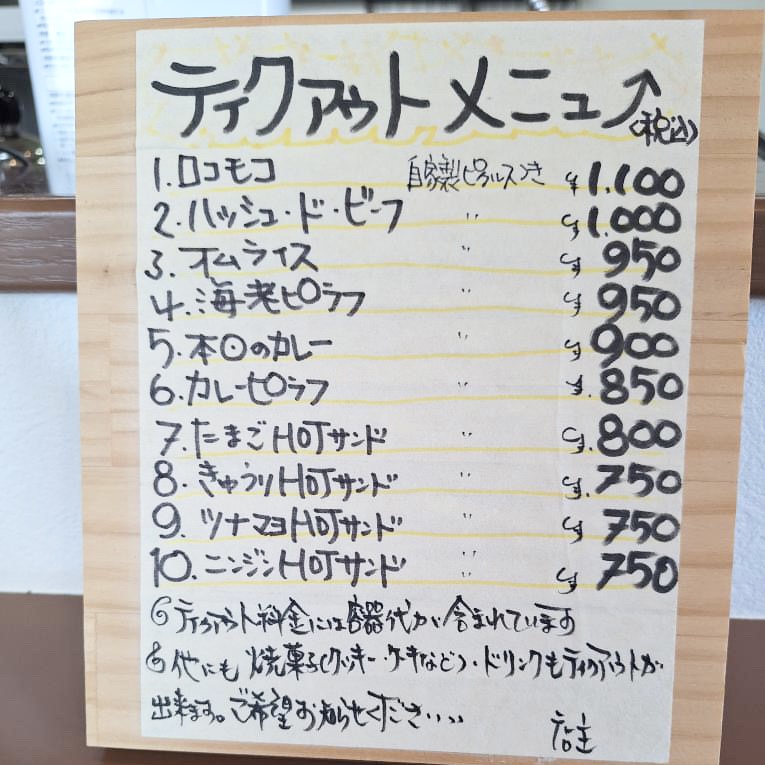 テイクアウトメニュー
(税込)
1.ロコモコ 自家製ピクルスつき ¥1.100
2.ハッシュ・ド・ビーフ 〃 ¥1.000
3.オムライス 〃 ¥950
4.海老ピラフ 〃 ¥950
5.本日のカレー 〃 ¥900
6.カレーピラフ 〃 ¥.850
7.たまごHOTサンド 〃 ¥.800
8.きゅうりHOTサンド 〃 ¥.750
9.ツナマヨHOTサンド 〃 ¥750
10.ニンジンHOTサンド 〃 ¥750
テイクアウト料金には容器代が含まれています
他にも焼菓子(クッキー・ケーキなど)・ドリンクもテイクアウトが
出来ます。ご希望お知らせください… 店主